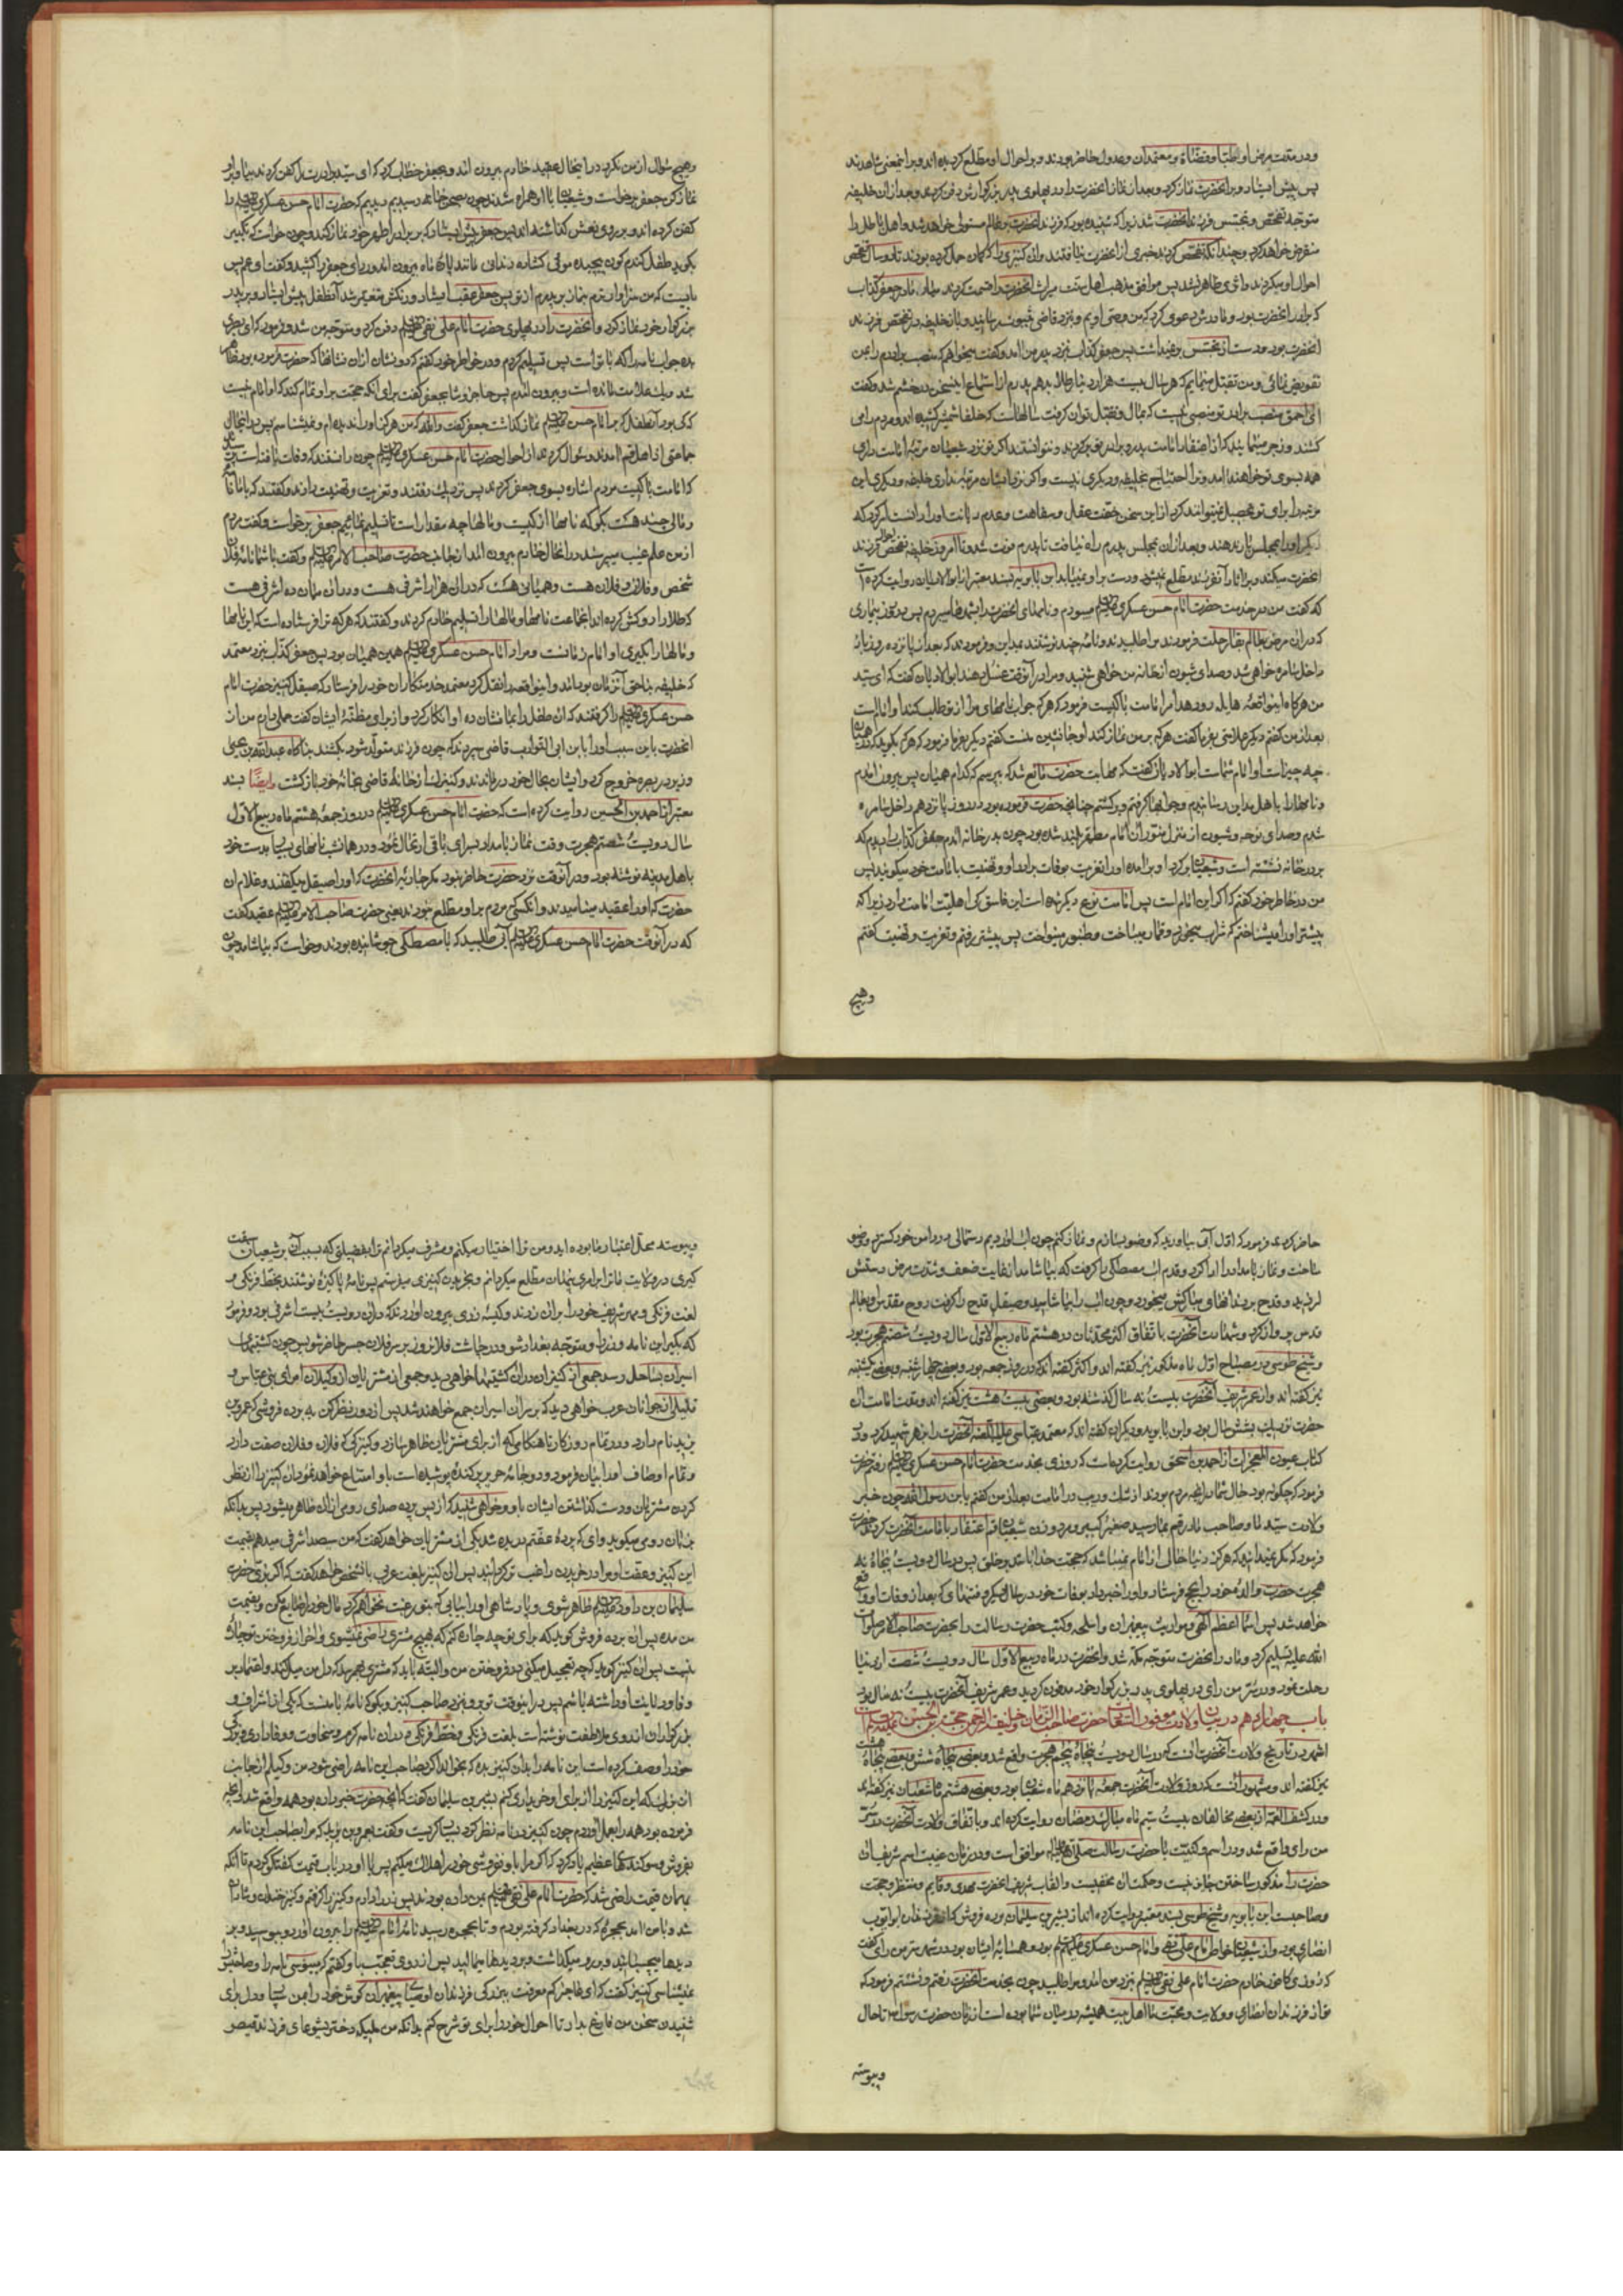 و در مدت مرض او اطبا و قضاة و معتمدان و عدول حاضر بودند و بر احوال او مطلع گردیده اند و بر این معنی شاهدند
پس پیش ایستاد و بر آنحضرت نماز کرد و بعد از نماز آنحضرت را در پهلوی پدر بزرگوارش دفن کردند و بعد از آن خلیفه
متوجه تفحص و تجسس فرزند آنحضرت شد زیرا که شنیده بود که فرزند آنحضرت بر عالم مستولی خواهد شد و اهل باطل را
منقرض خواهد کرد و چندانکه تفحص کردند خبری از آنحضرت نیافتند و آن کنیزی را که گمان حمل کرده بودند تا دو سال تفحص
احوال او میکردند و اثری ظاهر نشد پس موافق مذهب اهل سنت میراث آنحضرت را قسمت کردند میان مادر و جعفر کذاب
که برادر آنحضرت بود و مادرش دعوی کرد که من وصی اویم و نزد قاضی بثبوت رسانید و باز خلیفه در تفحص فرزند
آنحضرت بود و دست از تجسس بر نمیداشت پس جعفر کذاب نزد پدر من آمد و گفت میخواهم که منصب برادرم را بمن
تفویض نمائی و من تقبل مینمایم که هر سال بیست هزار دینار طلا بدهم پدرم از استماع این سخن در خشم شد و گفت
ای احمق منصب برادر تو منصبی نیست که بمال و تقبل توان گرفت سالهاست که خلفا شمشیر کشیده اند و مردم را می
کشند و زجر مینمایند که از اعتقاد امامت پدر و برادر تو برگردند و نتوانستند اگر تو نزد شیعیان مرتبه امامت داری
همه بسوی تو خواهند آمد و ترا احتیاج بخلیفه و دیگری نیست و اگر نزد ایشان مرتبه نداری خلیفه و دیگری این
مرتبه را برای تو تحصیل نمیتوانند کرد از این سخن خفت عقل و سفاهت و عدم دیانت او را دانست امر کرد که
دیگر او را بمجلس بار ندهند و بعد از آن بمجلس پدرم راه نیافت تا پدرم فوت شد و تا امروز خلیفه تفحص احوال فرزند
آنحضرت میکند و بر آثار آنفرزند مطلع نمیشود و دست بر او نمییابد ابن بابویه بسند معتبر از ابو الادیان روایت کرده است
که گفت من در خدمت حضرت امام حسن عسکری علیه السلام میبودم و نامهای آنحضرت را بشهرها میبردم پس در روز بیماری
که در آن مرض بعالم بقا رحلت فرمودند مرا طلبیدند و نامه چند نوشتند بمداین و فرمودند که بعد از پانزده روز باز
داخل سامره خواهی شد و صدای شیون از خانه من خواهی شنید و مرا در آنوقت غسل دهند ابو الادیان گفت که ای سید
من هرگاه این واقعه هایله رو دهد امر امامت با کیست فرمود که هر که جواب نامهای مرا از تو طلب کند او امام است
بعد از من گفتم دیگر علامتی بفرما گفت هر که بر من نماز کند او جانشین منست گفتم دیگر بفرما فرمود که هر که بگوید که در همیان
چه چیز است او امام شماست ابو الادیان گفت که مهابت حضرت مانع شد که بپرسم که کدام همیان پس بیرون آمدم
و نامها را باهل مداین رسانیدم و جوابها گرفتم و برگشتم چنانچه حضرت فرموده بود در روز پانزدهم داخل سامره
شدم و صدای نوحه و شیون از منزل منور آن امام مطهر بلند شده بود چون بدر خانه آمدم جعفر کذاب را دیدم که
بر در خانه نشسته است و شیعیان بر گرد او بر آمده او را تعزیت بوفات برادر او و تهنیت بامامت خود میگویند پس
من در خاطر خود گفتم که اگر این امام است پس امامت نوع دیگر شده است این فاسق کی اهلیت امامت دارد زیرا که
پیشتر او را میشناختم که شراب میخورد و قمار میباخت و طنبور مینواخت پس پیشتر رفتم و تعزیت و تهنیت گفتم
وهیچ
وهیچ سوال از من نکرد در اینحال عقید خادم بیرون آمد و بجعفر خطاب کرد که ای سید برادرت را کفن کردند بیا و بر او
نماز کن جعفر برخاست و شیعیان با او همراه شدند چون بصحن خانه رسیدیم دیدیم که حضرت امام حسن عسکری علیه السلام را
کفن کرده اند و بر روی نعش گذاشته اند پس جعفر پیش ایستاد که بر برادر اطهر خود نماز کند و چون خواست که تکبیر
بگوید طفلی گندم گون پیچیده موئی گشاده دندانی مانند پاره ماه بیرون آمد و ردای جعفر را کشید و گفت ای عم پس
بایست که من سزاوارترم بنماز بر پدرم از تو پس جعفر عقب ایستاد و رنگش متغیر شد آنطفل پیش ایستاد و بر پدر
بزرگوار خود نماز کرد و آنحضرت را در پهلوی حضرت امام علی نقی علیه السلام دفن کرد و متوجه من شد و فرمود که ای بصری
بده جواب نامه را که با تو است پس تسلیم کردم و در خاطر خود گفتم که دو نشان از آن نشانها که حضرت فرموده بود ظاهر
شد و یک علامت مانده است و بیرون آمدم پس حاجز وشا بجعفر گفت برای آنکه حجت بر او تمام کند که او امام نیست
که کی بود آن طفل که بر امام حسن علیه السلام نماز گذاشت جعفر گفت والله که من هرگز او را ندیده ام و نمیشناسم پس در اینحال
جماعتی از اهل قم آمدند و سوال کردند از احوال حضرت امام حسن عسکری علیه السلام چون دانستند که وفات یافته است پرسیدند
که امامت با کیست مردم اشاره بسوی جعفر کردند پس نزدیک رفتند و تعزیت و تهنیت دادند و گفتند که با ما نامه
و مالی چند هست بگو که نامها از کیست و مالها چه مقدار است تا تسلیم نمائیم جعفر برخاست و گفت مردم
از من علم غیب میپرسند در آنحال خادم بیرون آمد از جانب حضرت صاحب الامر علیه السلام و گفت با شما نامه فلان
شخص و فلان و فلان هست و همیانی هست که در آن هزار اشرفی هست و در آن میان ده اشرفی هست
که طلا را روکش کرده اند آن جماعت نامها و مالها را تسلیم خادم کردند و گفتند که هر که ترا فرستاده است که این نامها
و مالها را بگیری او امام زمانست و مراد امام حسن عسکری علیه السلام همین همیان بود پس جعفر کذاب نزد معتمد
که خلیفه بناحق آنزمان بود آمد و این واقعه را نقل کرد معتمد خدمتکاران خود را فرستاد که صیقل کنیز حضرت امام
حسن عسکری علیه السلام را گرفتند که آن طفل را بما نشان ده او انکار کرد و از برای مظنه ایشان گفت حملی دارم من از
آنحضرت باین سبب او را بابن ابی الشوارب قاضی سپردند که چون فرزند متولد شود بکشند بناگاه عبدالله بن یحیی
وزیر مرد و صاحب الزنج در بصره خروج کرد و ایشان بحال خود درماندند و کنیزک از خانه قاضی بخانه خود بازگشت وایضا بسند
معتبر از احمد بن الحسین روایت کرده است که حضرت امام حسن عسکری علیه السلام در روز جمعه هشتم ماه ربیع الاول
سال دویست و شصتم هجرت وقت نماز بامداد بسرای باقی ارتحال نمود و در همانشب نامهای بسیار بدست خود
باهل مدینه نوشته بود و در آنوقت نزد حضرت حاضر نبود مگر جاریه آنحضرت که او را صیقل میگفتند و غلام آن
حضرت که او را عقید مینامیدند و آنکسی که مردم بر او مطلع نبودند یعنی حضرت صاحب الامر علیه السلام عقید گفت
که در آنوقت حضرت امام حسن عسکری علیه السلام آبی طلبید که با مصطکی جوشانیده بودند و خواست که بیاشامد چون
حاضر کردیم فرمود که اول آبی بیاورید که وضو بسازم و نماز کنم چون آب آوردیم دستمالی در دامن خود گسترد و وضو
ساخت و نماز بامداد را ادا کرد و قدح آب مصطکی را گرفت که بیاشامد از غایت ضعف و شدت مرض دستش
لرزید و قدح بر دندانهای مبارکش میخورد و چون آب را بیاشامید و صیقل قدح را گرفت روح مقدس او بعالم
قدس پرواز کرد و شهادت آنحضرت باتفاق اکثر محدثان در هشتم ماه ربیع الاول سال دویست و شصتم هجرت بود
و شیخ طوسی در مصباح اول ماه مذکور نیز گفته اند و اکثر گفته اند که در روز جمعه بود و بعضی چهارشنبه و بعضی یکشنبه
نیز گفته اند و از عمر شریف آنحضرت بیست و نه سال گذشته بود و بعضی بیست و هشت نیز گفته اند و مدت امامت آن
حضرت نزدیک بشش سال بود و ابن بابویه و دیگران گفته اند که معتمد عباسی آنحضرت را بزهر شهید کرد و در
کتاب عیون المعجزات از احمد بن اسحق روایت کرده است که روزی بخدمت حضرت امام حسن عسکری علیه السلام رفتم حضرت
فرمود که چگونه بود حال شما در آنچه مردم بودند از شک و ریب در امامت بعد از من گفتم یابن رسول الله چون خبر
ولادت سید ما و صاحب ما در قم بما رسید صغیر و کبیر و مرد و زن شیعیان قم اعتقاد بامامت آنحضرت کردند حضرت
فرمود که مگر نمیدانید که هرگز دنیا خالی از امام نمیباشد که حجت خدا باشد بر خلق پس در سال دویست و پنجاه و نه
هجرت حضرت والده خود را بحج فرستاد و او را خبر داد بوفات خود در سال دیگر و فتنهائی که بعد از وفات او واقع
خواهد شد پس اسماء اعظم الهی و مواریث پیغمبران و اسلحه و کتب حضرت رسالت را بحضرت صاحب الامر صلوات
الله علیه تسلیم کرد و مادر آنحضرت متوجه مکه شد و آنحضرت در ماه ربیع الاول سال دویست و شصت از دنیا
رحلت نمود و در سر من رای در پهلوی پدر بزرگوار خود مدفون گردید و عمر شریف آنحضرت بیست و نه سال بود
باب چهاردهم در بیان ولادت حضرت صاحب الزمان و خلیفه الرحمن حجة بن الحسن
اشهر در تاریخ ولادت آنحضرت آنست که در سال دویست و پنجاه و پنجم هجرت واقع شد و بعضی پنجاه و شش و بعضی پنجاه و هشت
نیز گفته اند و مشهور آنست که روز ولادت آنحضرت جمعه پانزدهم ماه شعبان بود و بعضی هشتم ماه شعبان نیز گفته اند
و در کشف الغمه از بعضی مخالفان بیست و سیم ماه مبارک رمضان روایت کرده اند و باتفاق ولادت آنحضرت در سر
من رای واقع شد و در اسم و کنیت با حضرت رسالت صلی الله علیه وآله موافق است و در زمان غیبت اسم شریف آن
حضرت را مذکور ساختن جایز نیست و حکمت آن مخفیست و القاب شریف آنحضرت مهدی و قایم و منتظر و حجت
و صاحبست ابن بابویه و شیخ طوسی بسند معتبر روایت کرده اند از بشر بن سلیمان برده فروش که از فرزندان ابو ایوب
انصاری بود و از شیعیان خاص امام علی نقی و امام حسن عسکری علیهم السلام بود و همسایه ایشان بود در شهر سر من رای گفت
که روزی کافور خادم حضرت امام علی نقی علیه السلام نزد من آمد و مرا طلبید چون بخدمت آنحضرت رفتم و نشستم فرمود که
تو از فرزندان انصاری و ولایت و محبت ما اهل بیت همیشه در میان شما بوده است از زمان حضرت رسول تا حال
و پیوسته
و پیوسته محل اعتماد ما بوده اید و من ترا اختیار میکنم و مشرف میگردانم ترا بفضیلتی که بسبب آن بر شیعیان سبقت
گیری در ولایت ما و ترا بر امری پنهان مطلع میگردانم و بخریدن کنیزی میفرستم پس نامه پاکیزه نوشتند بخط فرنگی و
لغت فرنگی و مهر شریف خود را بر آن زدند و کیسه زری بیرون آوردند که در آن دویست و بیست اشرفی بود و فرمود
که بگیر این نامه و زر را و متوجه بغداد شو و در چاشت فلان روز بر سر فلان جسر حاضر شو پس چون کشتیهای
اسیران بساحل رسد جمعی از کنیزان در آن کشتیها خواهی دید و جمعی از مشتریان از وکیلان امرای بنی عباس و
قلیلی از جوانان عرب خواهی دید که بر سر آن اسیران جمع خواهند شد پس از دور نظر کن به برده فروشی که عمرو بن
یزید نام دارد و در تمام روز کار تا هنگامی که از برای مشتریان ظاهر سازد کنیزکی که فلان و فلان صفت دارد
و تمام اوصاف او را بیان فرمود و دو جامه حریر پر کنده پوشیده است و ابا و امتناع خواهد نمود آن کنیز را از نظر
کردن مشتریان و دست گذاشتن ایشان باو و خواهی شنید که از پس پرده صدای رومی از آن ظاهر میشود پس بدانکه
بزبان رومی میگوید وای که پرده عفتم دریده شد پس یکی از مشتریان خواهد گفت که من سیصد اشرفی میدهم بقیمت
این کنیز و عفت او مرا در خریدن راغب تر گردانید پس آن کنیز بلغت عربی بآنشخص خواهد گفت که اگر بزی حضرت
سلیمان بن داود علیه السلام ظاهر شوی و پادشاهی او را بیابی که بتو رغبت نخواهم کرد مال خود را ضایع مکن و بقیمت
من مده پس آن برده فروش گوید که برای تو چه چاره کنم که بهیچ مشتری راضی نمیشوی و آخر از فروختن تو چاره
نیست پس آن کنیز گوید که چه تعجیل میکنی در فروختن من و البته باید که مشتری بهم رسد که دل من میل کند و اعتماد بر
وفا و دیانت او داشته باشم پس در اینوقت تو برو نزد صاحب کنیز و بگو که نامه با منست که یکی از اشراف و
بزرگواران از روی ملاطفت نوشته است بلغت فرنگی و خط فرنگی و در آن نامه کرم و سخاوت و وفاداری و بزرگی
خود را وصف کرده است این نامه را بآن کنیز بده که بخواند اگر بصاحب این نامه راضی شود من وکیلم از جانب
آن بزرگ که این کنیز را از برای او خریداری کنم بشر بن سلیمان گفت که آنچه حضرت خبر داده بود همه واقع شد و آنچه
فرموده بود همه را بعمل آوردم چون کنیز در نامه نظر کرد بسیار گریست و گفت بعمرو بن یزید که مرا بصاحب این نامه
بفروش و سوگندهای عظیم یاد کرد که اگر مرا باو نفروشی خود را هلاک میکنم پس با او در باب قیمت گفتگو کردم تا آنکه
بهمان قیمت راضی شد که حضرت امام علی نقی علیه السلام بمن داده بودند پس زر را دادم و کنیز را گرفتم و کنیز خندان و شادان
شد و با من آمد بحجره که در بغداد گرفته بودم و تا بحجره رسید نامه امام علیه السلام را بیرون آورد و میبوسید و بر
دیدها میچسبانید و بر رو میگذاشت و بر دیدها میمالید پس از روی تعجب باو گفتم که میبوسی نامه را و صاحبش را
نمیشناسی کنیز گفت که ای عاجز کم معرفت ببزرگی فرزندان اوصیای پیغمبران گوش خود را بمن بسپار و دل برای
شنیدن سخن من فارغ بدار تا احوال خود را برای تو شرح کنم بدانکه من ملیکه دختر یشوعای فرزند قیصر